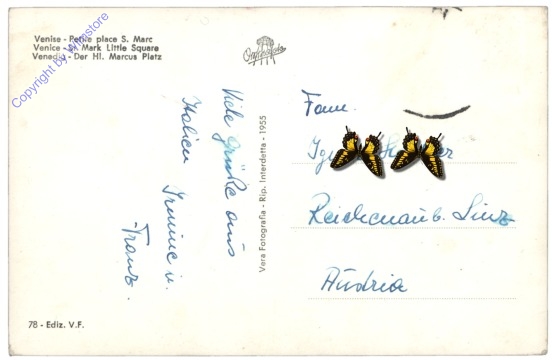 Venise - Petite place S. Marc
Venice - St. Mark Little Square
Venedig - Der Hl. Marcus Platz
Copyright by Wernstore
Viele Grüße aus
Italien Irmine u.
Franz.
Vera Fotografia - Rip. Interdetta - 1955
Fam.
Reichenau b. Linz
Austria
78 - Ediz. V.F.